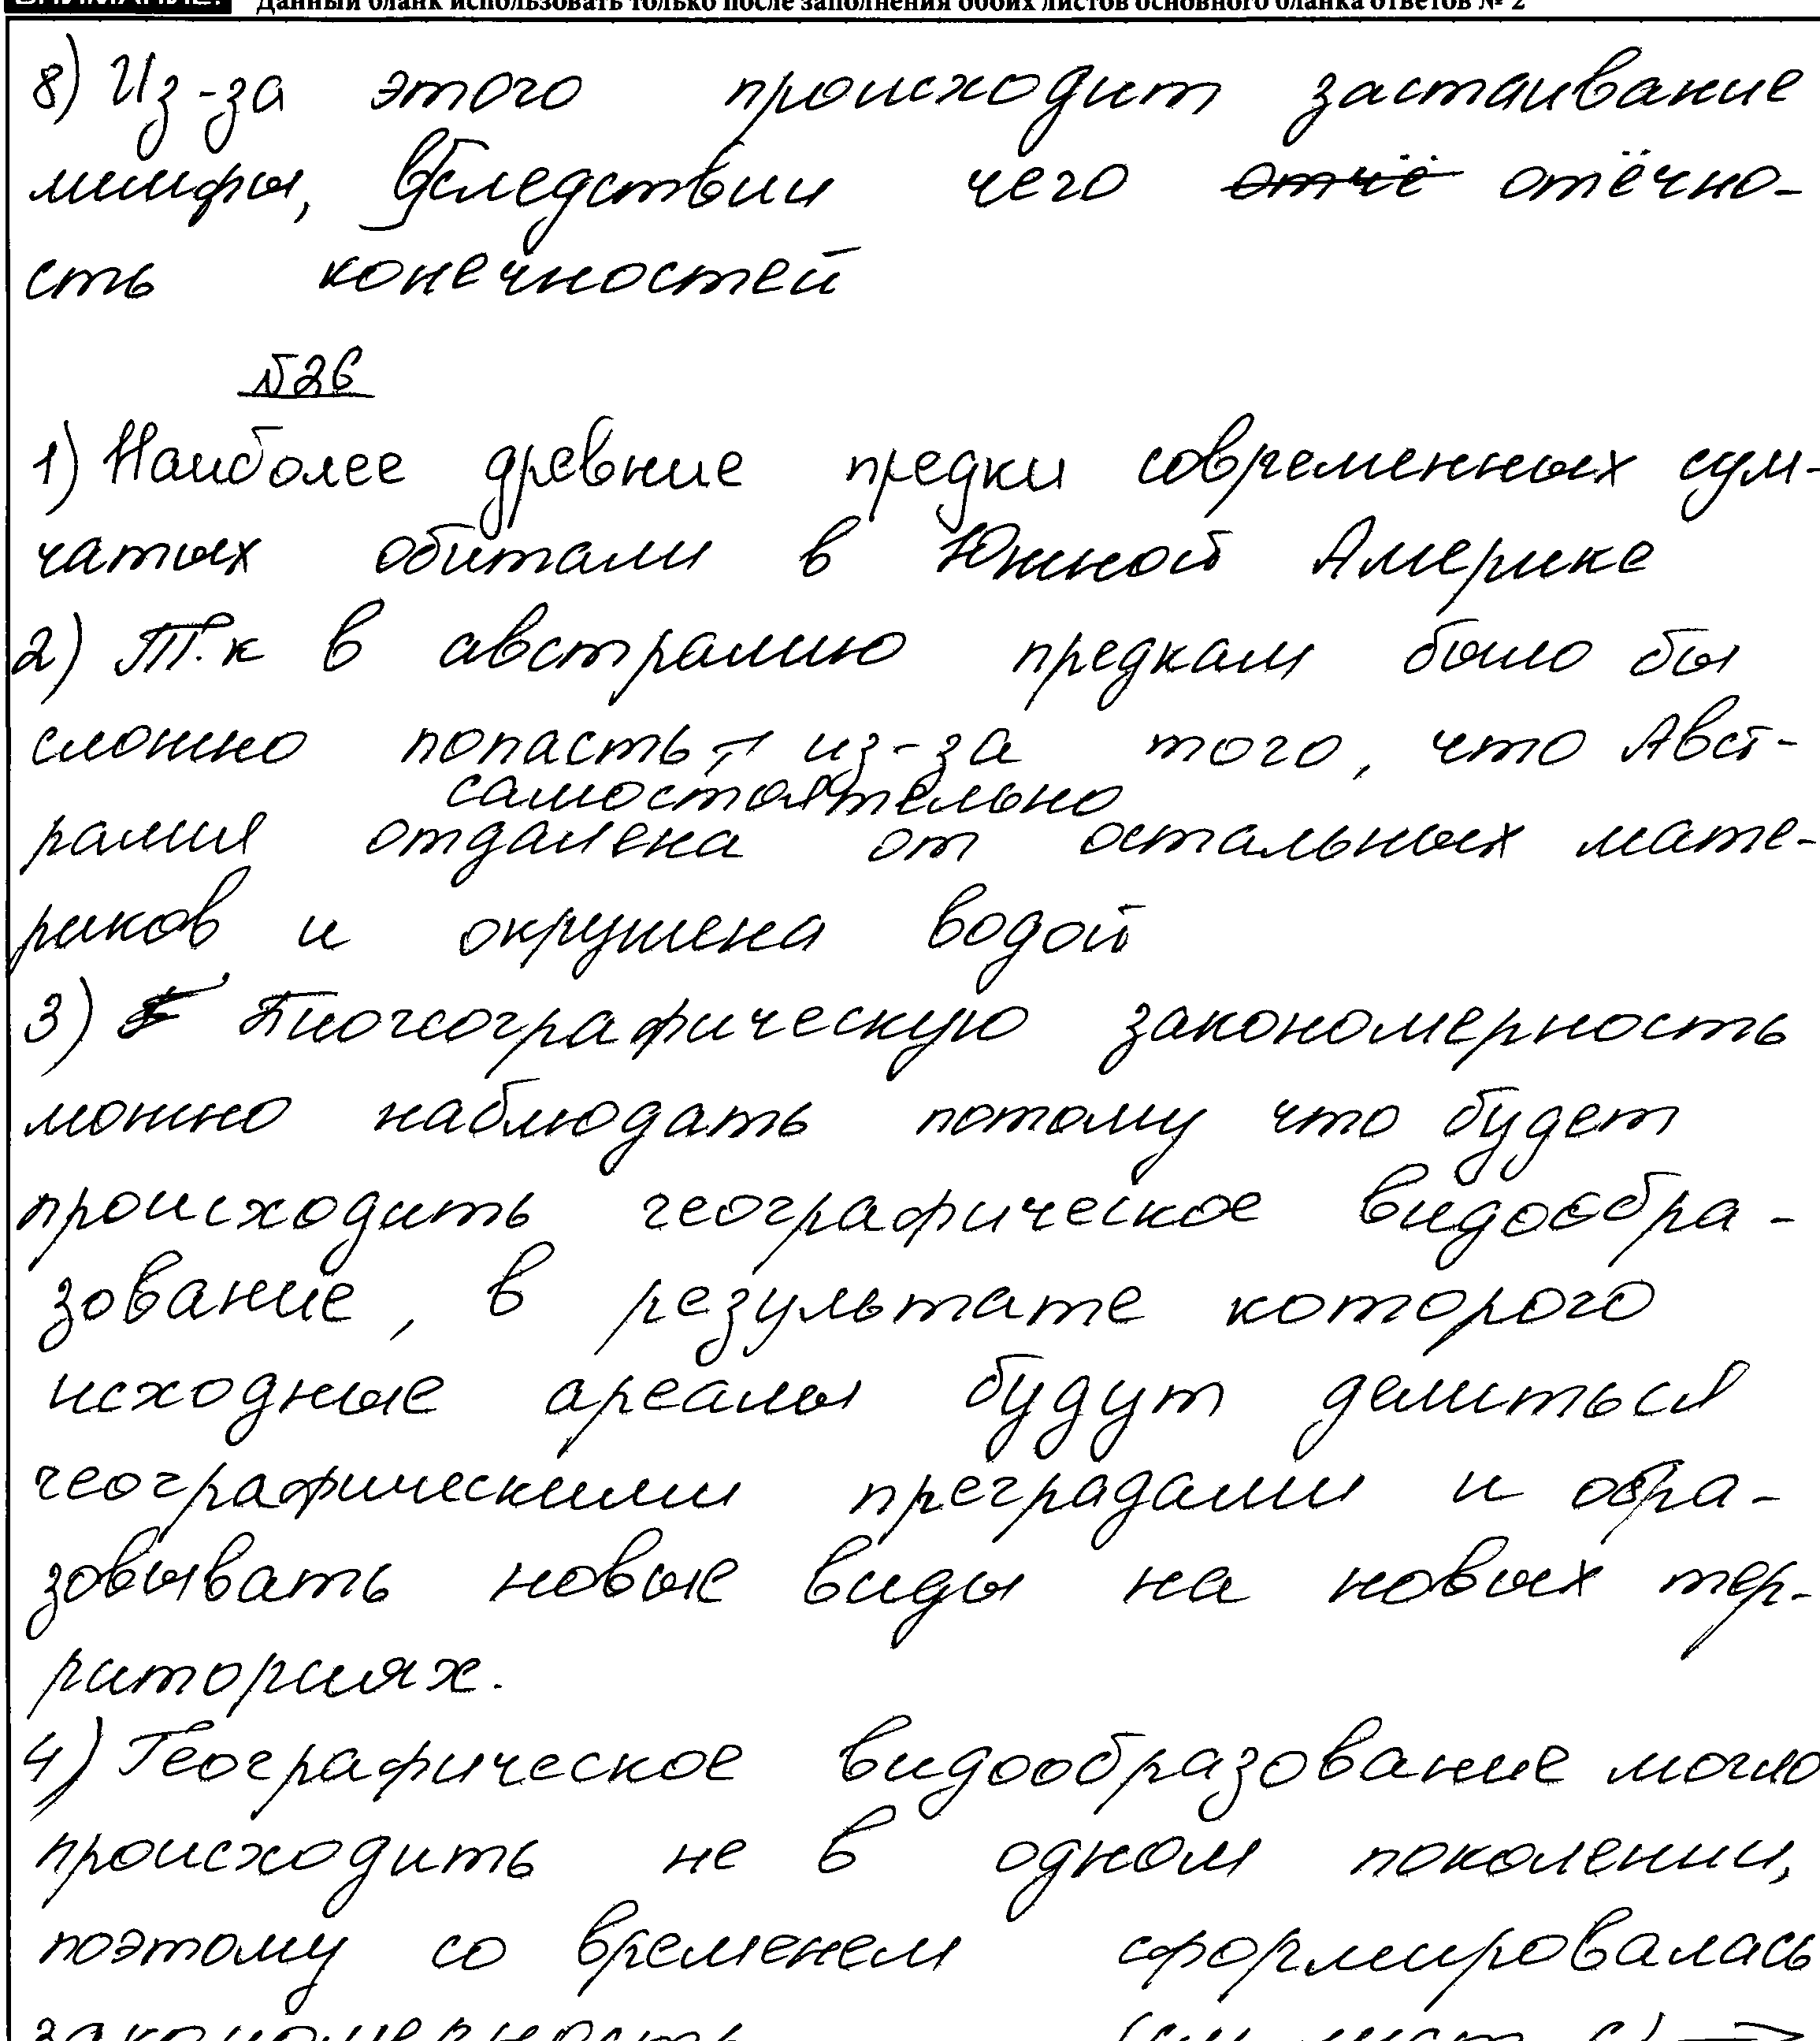 ВНИМАНИЕ! Данный бланк использовать только после заполнения обоих листов основного бланка ответов № 2
8) Из-за этого происходит застаивание
лимфы, вследствии чего отчё отёчно-
сть конечностей
№26
1) Наиболее древние предки современных сум-
чатых обитали в Южной Америке
2) Т.к в австралию предкам было бы
сложно попасть, из-за того, что Авст-
самостоятельно
ралия отдалена от остальных мате-
риков и окружена водой
3) Биогеографическую закономерность
можно наблюдать потому что будет
происходить географическое видообра-
зование, в результате которого
исходные ареалы будут делиться
географическими преградами и обра-
зовывать новые виды на новых тер-
риториях.
4) Географическое видообразование могло
происходить не в одном поколении,
поэтому со временем сформировалась
закономерность